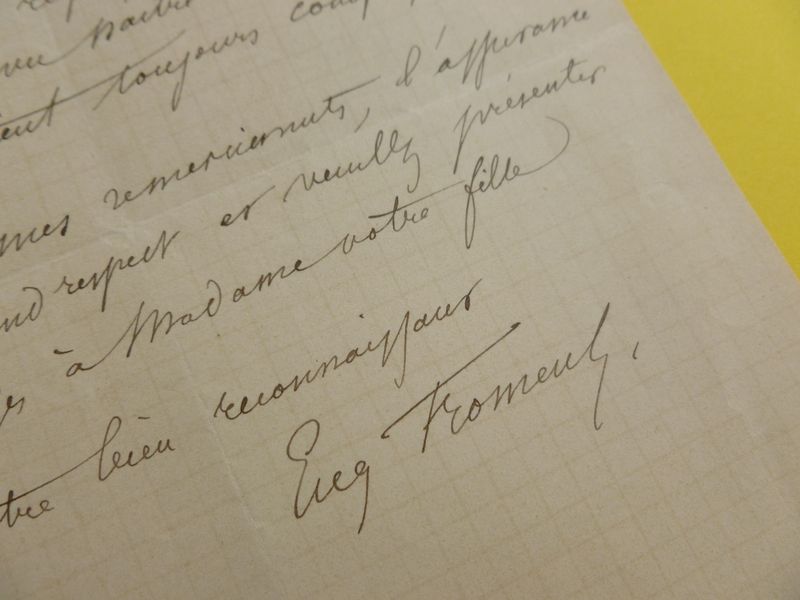 toujours
mes remerciements, l'assurance
respect et veuillez présenter
à Madame votre fille
bien reconnaissant
Eug Froment,